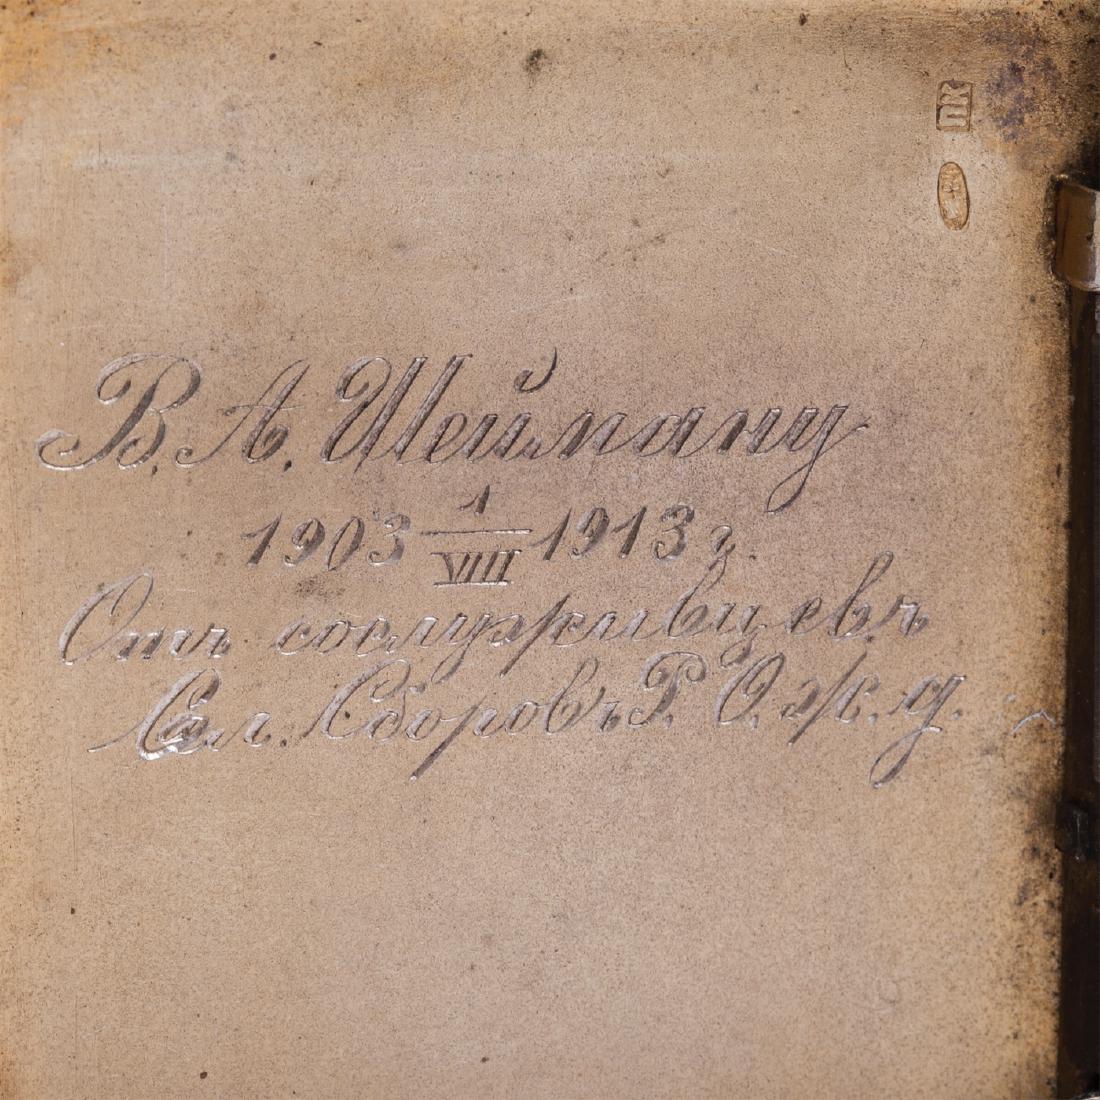 ПК
В. А. Шейману
1903 1/VIII 1913 г.
Отъ сослуживцевъ
Сл. Сборовъ Р. О. ж. д.